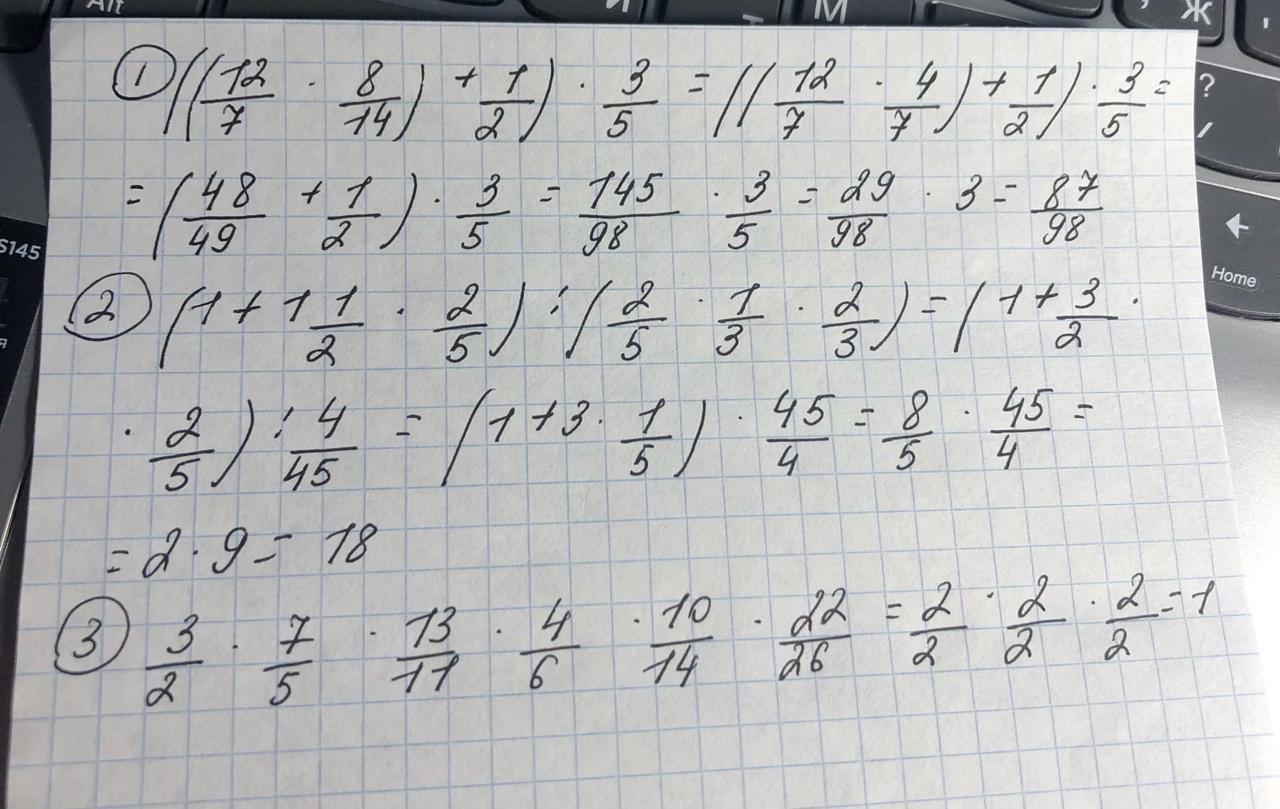 Alt И Т М Ж
① ((12/7 · 8/14) + 1/2) · 3/5 = ((12/7 · 4/7) + 1/2) · 3/5 =
= (48/49 + 1/2) · 3/5 = 145/98 · 3/5 = 29/98 · 3 = 87/98
② (1 + 1 1/2 · 2/5) : (2/5 · 1/3 · 2/3) = (1 + 3/2 ·
· 2/5) : 4/45 = (1 + 3 · 1/5) · 45/4 = 8/5 · 45/4 =
= 2 · 9 = 18
③ 3/2 · 7/5 · 13/11 · 4/6 · 10/14 · 22/26 = 2/2 · 2/2 · 2/2 = 1
S145
?
/
Home